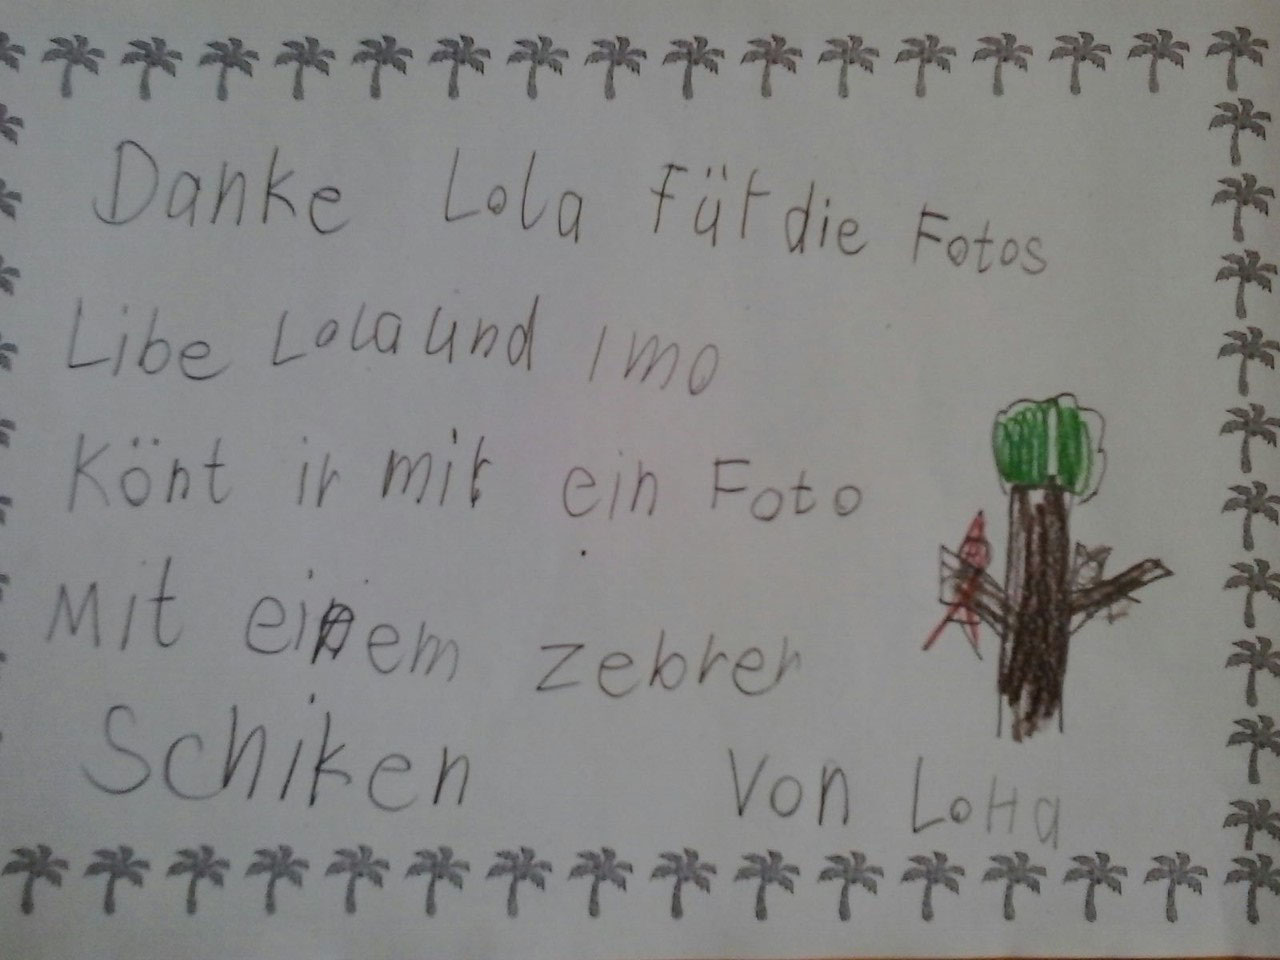 Danke Lola für die Fotos
Libe Lola und Imo
Könt ir mir ein Foto
Mit einem zebrer
Schiken Von LoHa